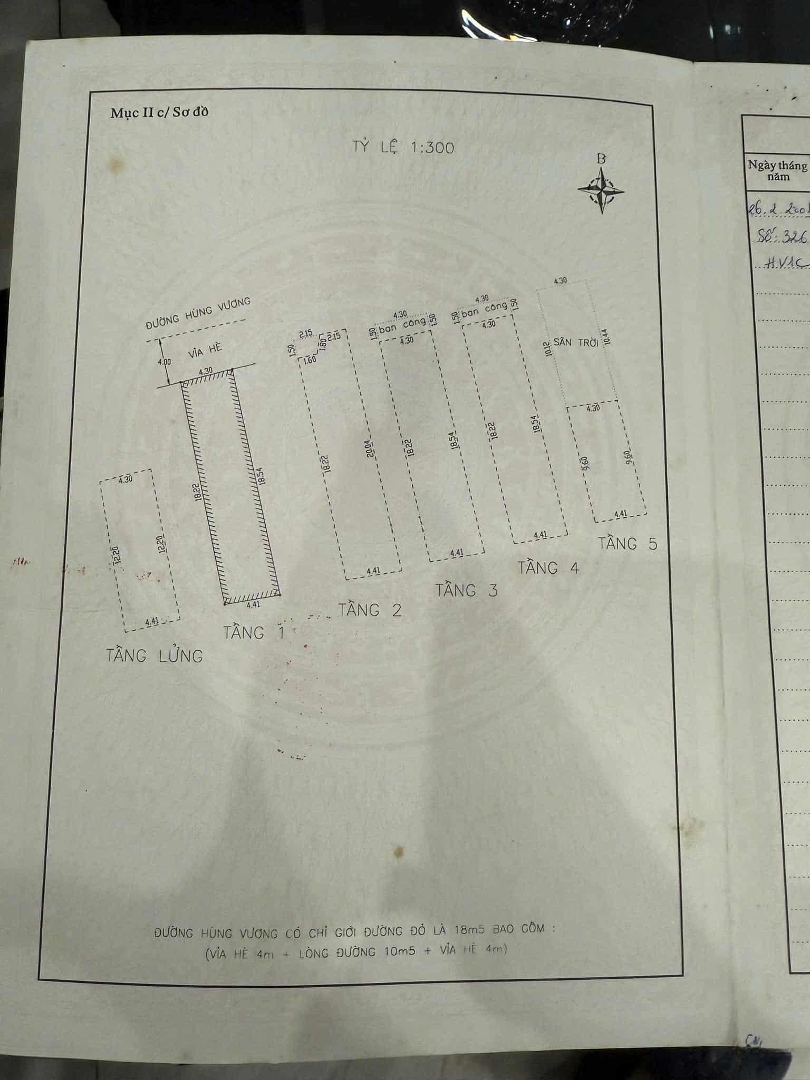 Mục II c/ Sơ đồ
TỶ LỆ 1:300
B
ĐƯỜNG HÙNG VƯƠNG
4.00
VỈA HÈ
4.30
18.22
18.54
4.41
TẦNG 1
4.30
12.20
12.20
4.41
TẦNG LỬNG
2.15
1.50
1.80
2.15
1.60
18.22
20.04
4.41
TẦNG 2
4.30
1.50
ban công
1.50
4.30
18.22
18.54
4.41
TẦNG 3
4.30
1.50
ban công
1.50
4.30
18.22
18.54
4.41
TẦNG 4
4.30
10.12
SÂN TRỜI
10.44
4.30
9.60
9.60
4.41
TẦNG 5
ĐƯỜNG HÙNG VƯƠNG CÓ CHỈ GIỚI ĐƯỜNG ĐỎ LÀ 18m5 BAO GỒM :
(VỈA HÈ 4m + LÒNG ĐƯỜNG 10m5 + VỈA HÈ 4m)
Ngày tháng
năm
26.2
Số: 326